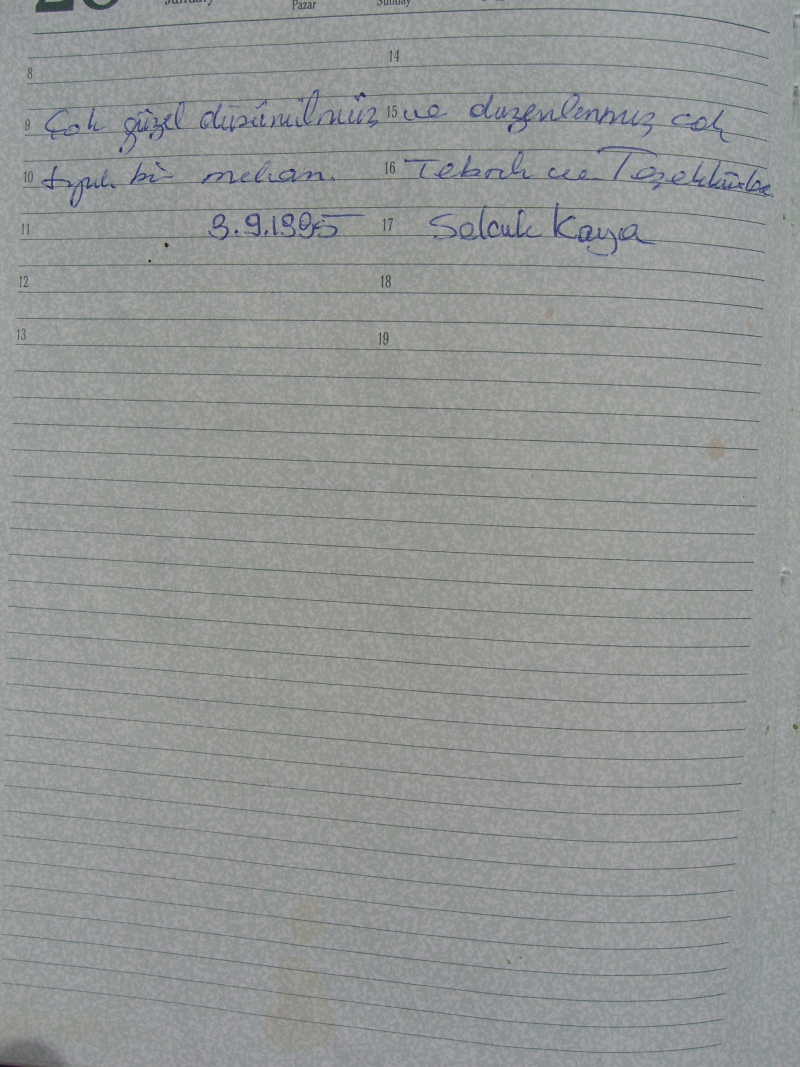 January Pazar Sunday
14
8
9 Çok güzel düşünülmüş 15 ve düzenlenmiş çok
10 tipik bir mekan. 16 Tebrik ve Teşekkürler
11 3.9.1995 17 Selçuk Kaya
12 18
13 19